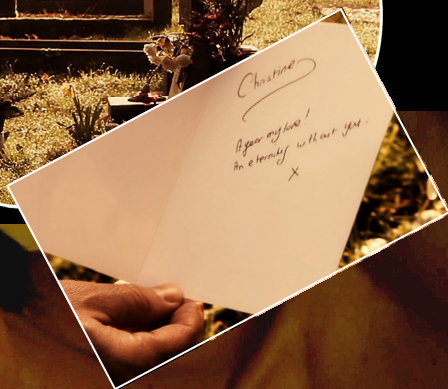 Christine
A year my love!
An eternity without you.
x